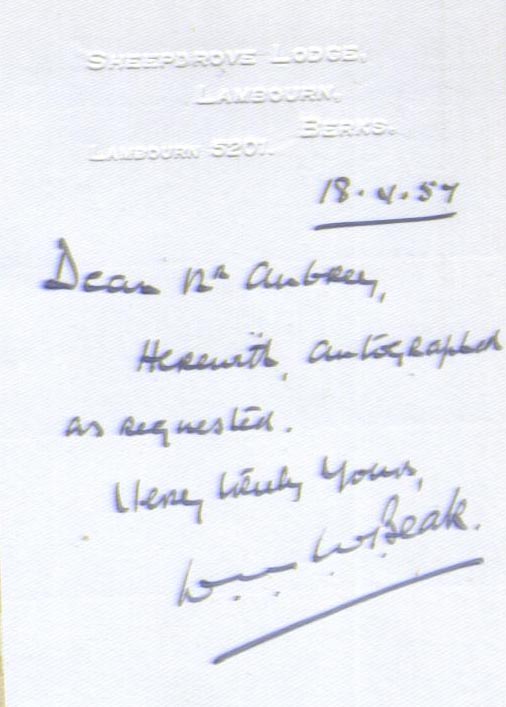 SHEEPDROVE LODGE,
LAMBOURN,
BERKS.
LAMBOURN 5201.
18.4.57
Dear Mr Aubrey,
Herewith, autographed
as requested.
Very truly yours,
Wm W Beak.